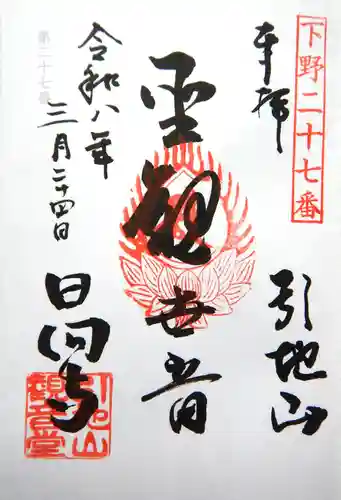 下野二十七番
奉拝
引地山
聖観世音
令和八年
三月二十四日
第二十七番
日向寺
引地山
観音堂